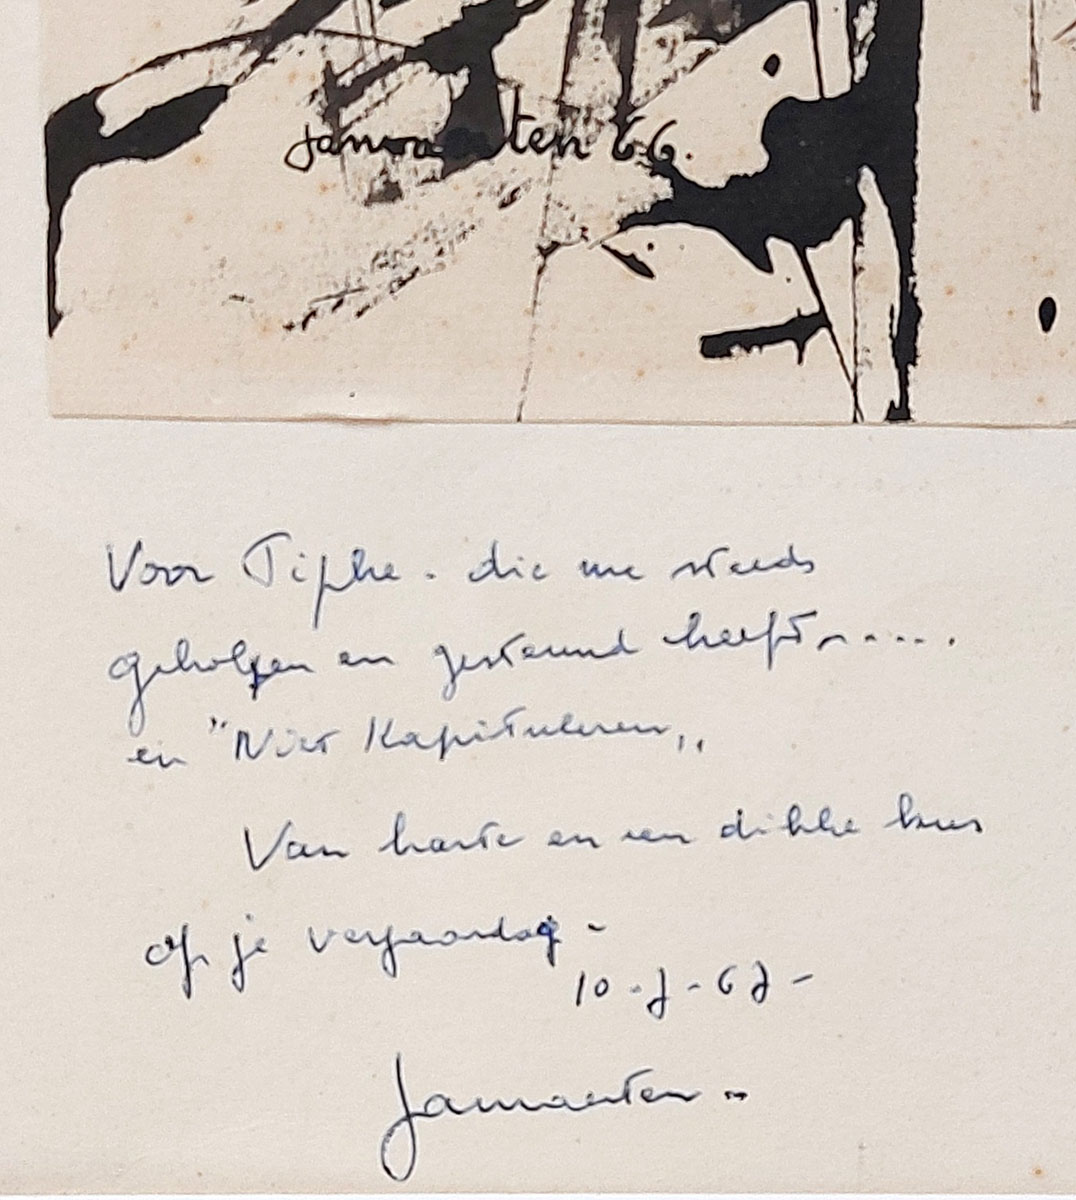 Jan Maarten 66.
Voor Tipke. die me steeds
geholpen en gesteund heeft.....
en "Niet Kapituleren„
Van harte en een dikke kus
op je verjaardag -
10-7-67-
Jamaarten..